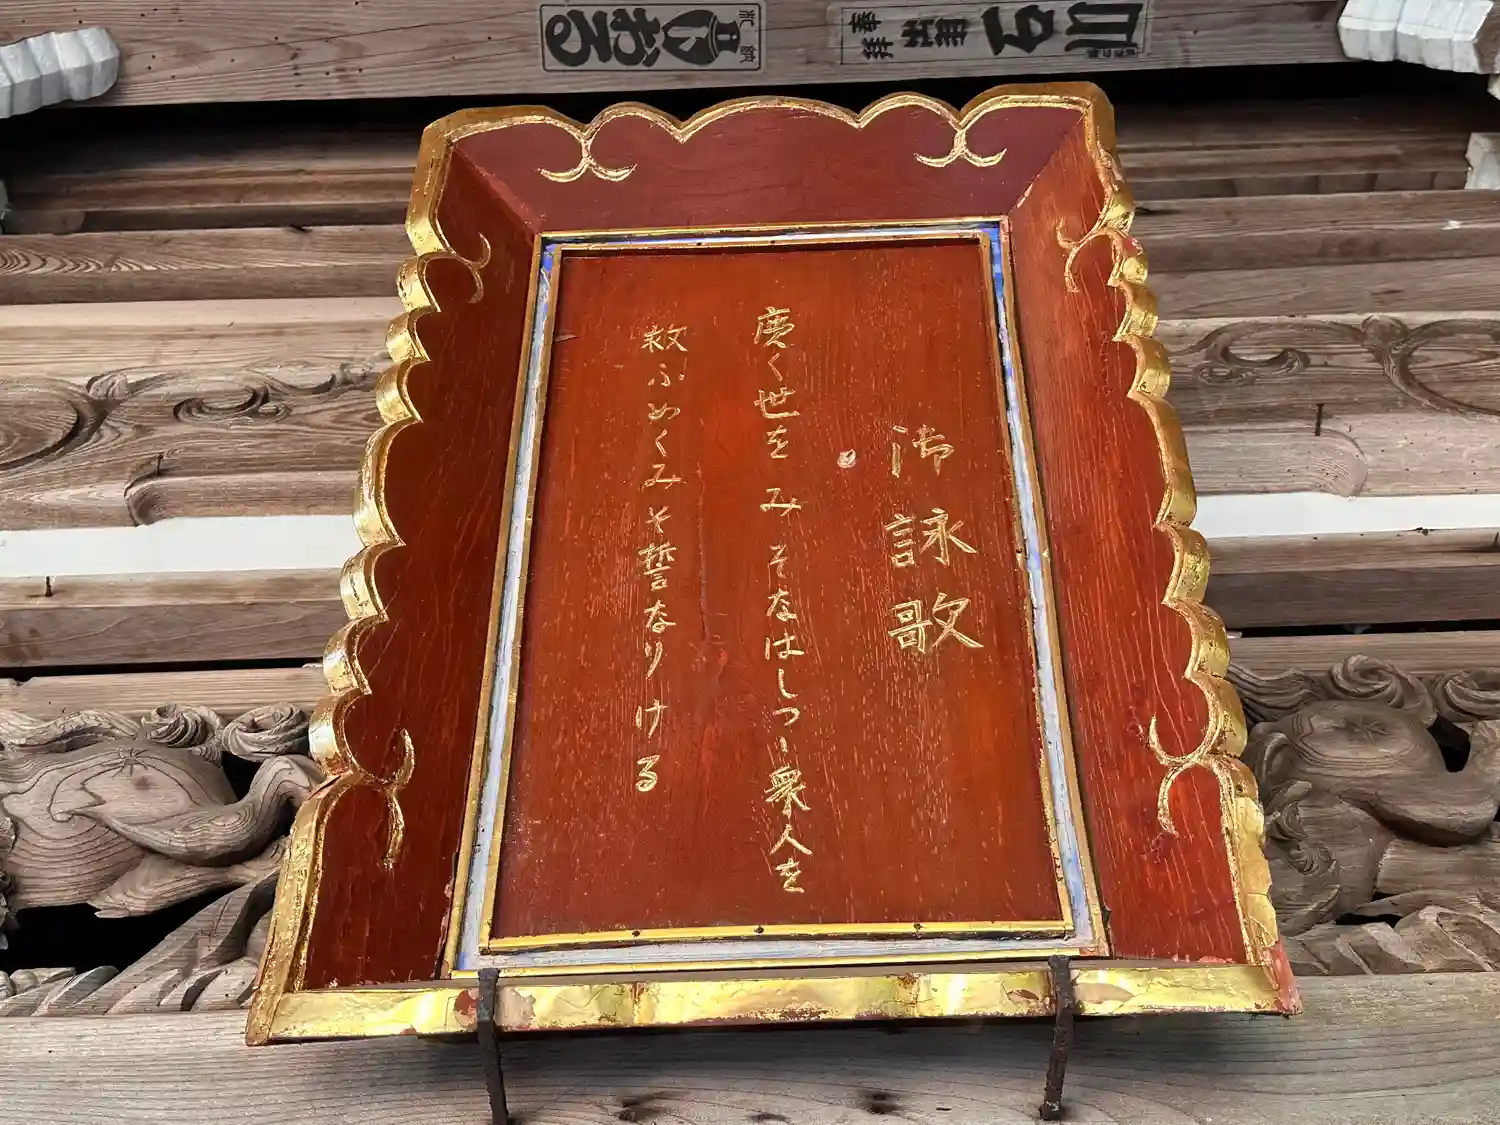 御詠歌
廣く世をみそなはしつゝ衆人を
救ふめくみそ誓なりける